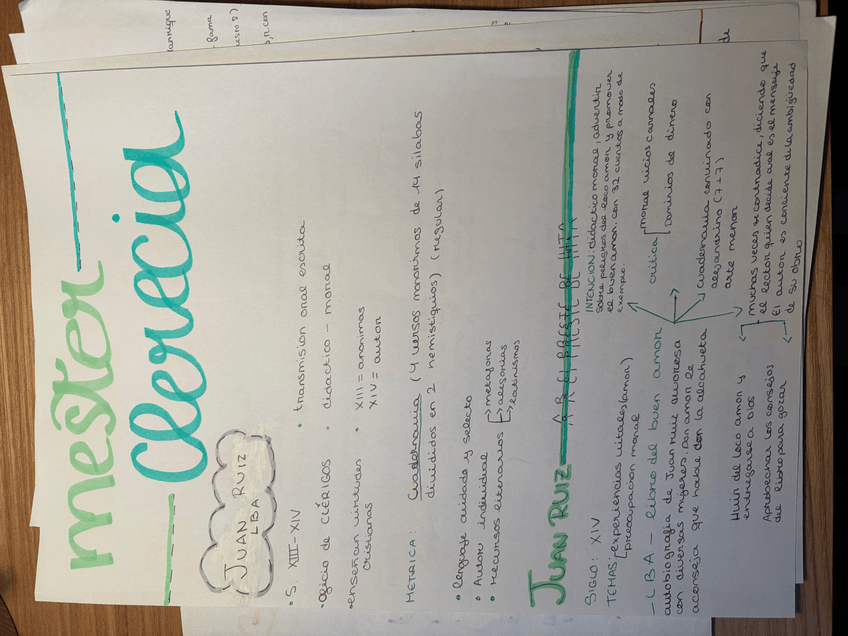 mester
Clerecia
JUAN RUIZ
LBA
• S. XIII-XIV
• transmision oral escrita
• oficio de CLÉRIGOS
• didactico - moral
• enseñan virtudes cristianas
• XIII = anonimas
XIV = autor
METRICA: Cuadernavia (4 versos monorrimos de 14 silabas
divididos en 2 hemistiquios) (regular)
• lenguaje cuidado y selecto
• Autor individual
• Recursos literarios → metaforas
→ alegorias
→ latinismos
JUAN RUIZ — ARCIPRESTE DE HITA
SIGLO: XIV
TEMAS: experiencias vitales (amor)
preocupacion moral
INTENCION: didactico moral, advertir
sobre peligros del loco amor y promover
el buen amor con 32 cuentos a modo de
exemplo.
- LBA - libro del buen amor
autobiografia de Juan Ruiz amorosa
con diversas mujeres. Don amor le
aconseja que hable con la alcahueta
critica
moral vicios carnales
Dominios de dinero
cuadernavia convinado con
alejandrino (7+7)
arte menor
muchas veces se contradice, diciendo que
el lector quien decide cual es el mensaje
El autor es conciente de la ambiguedad
de su obra
Huir del loco amor y
entregarse a Dios
Aprobechar los consejos
del libro para gozar
manrique
fama
de